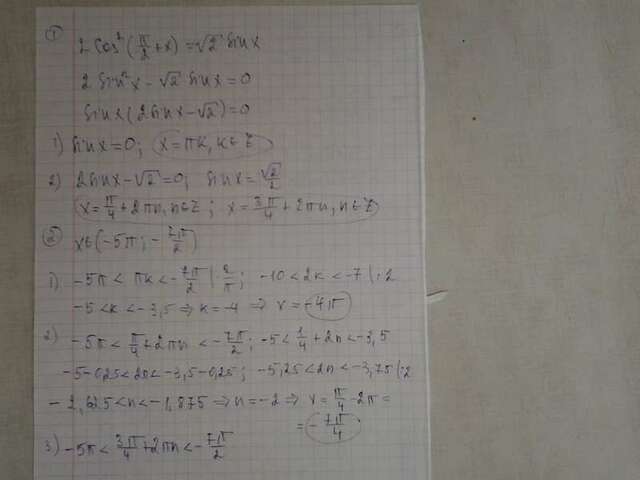 ①
2 cos²(π/2 + x) = √2 sin x
2 sin²x − √2 sin x = 0
sin x (2 sin x − √2) = 0
1) sin x = 0; x = πk, k ∈ Z
2) 2 sin x − √2 = 0; sin x = √2/2
x = π/4 + 2πn, n ∈ Z; x = 3π/4 + 2πn, n ∈ Z
② x ∈ (−5π; −7π/2)
1) −5π < πk < −7π/2 | · 2/π; −10 < 2k < −7 | : 2
−5 < k < −3,5 ⇒ k = −4 ⇒ x = −4π
2) −5π < π/4 + 2πn < −7π/2; −5 < 1/4 + 2n < −3,5
−5−0,25 < 2n < −3,5−0,25; −5,25 < 2n < −3,75 | : 2
−2,625 < n < −1,875 ⇒ n = −2 ⇒ x = π/4 − 2π =
= −7π/4
3) −5π < 3π/4 + 2πn < −7π/2